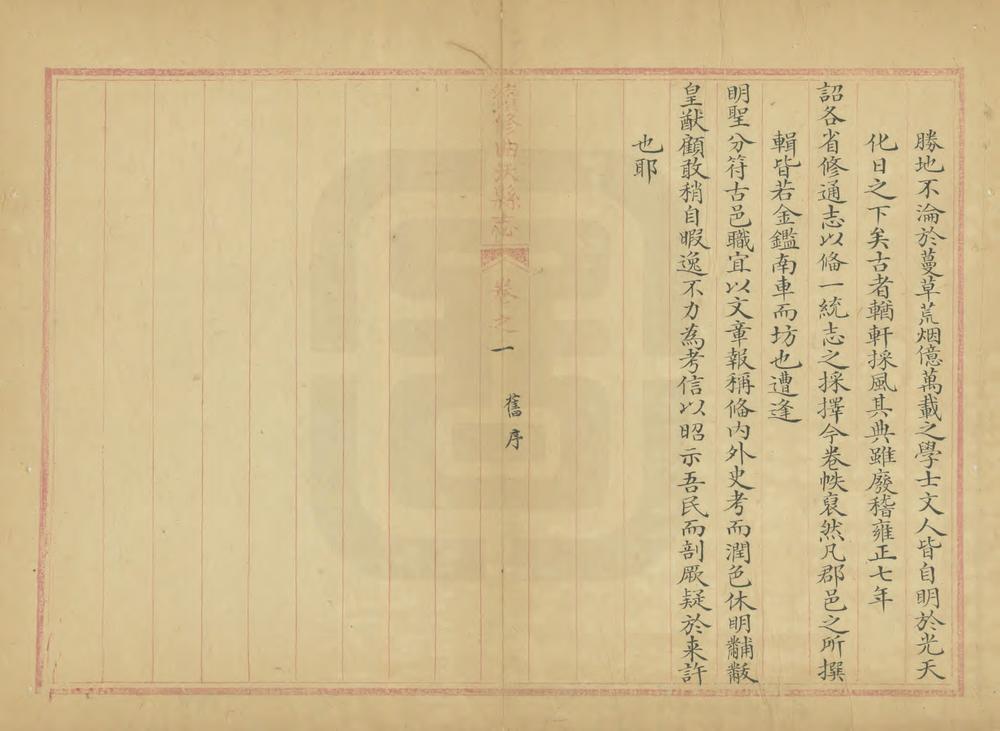 勝地不淪於蔓草荒烟億萬載之學士文人皆自明於光天
化日之下矣古者輶軒採風其典雖廢稽雍正七年
詔各省修通志以俻一統志之採擇今卷帙裒然凡郡邑之所撰
輯皆若金鑑南車而坊也遭逢
明聖分符古邑職宜以文章報稱俻内外史考而潤色休明黼黻
皇猷顧敢稍自暇逸不力為考信以昭示吾民而剖厥疑於来許
也耶
續修曲沃縣志
卷之一
舊序